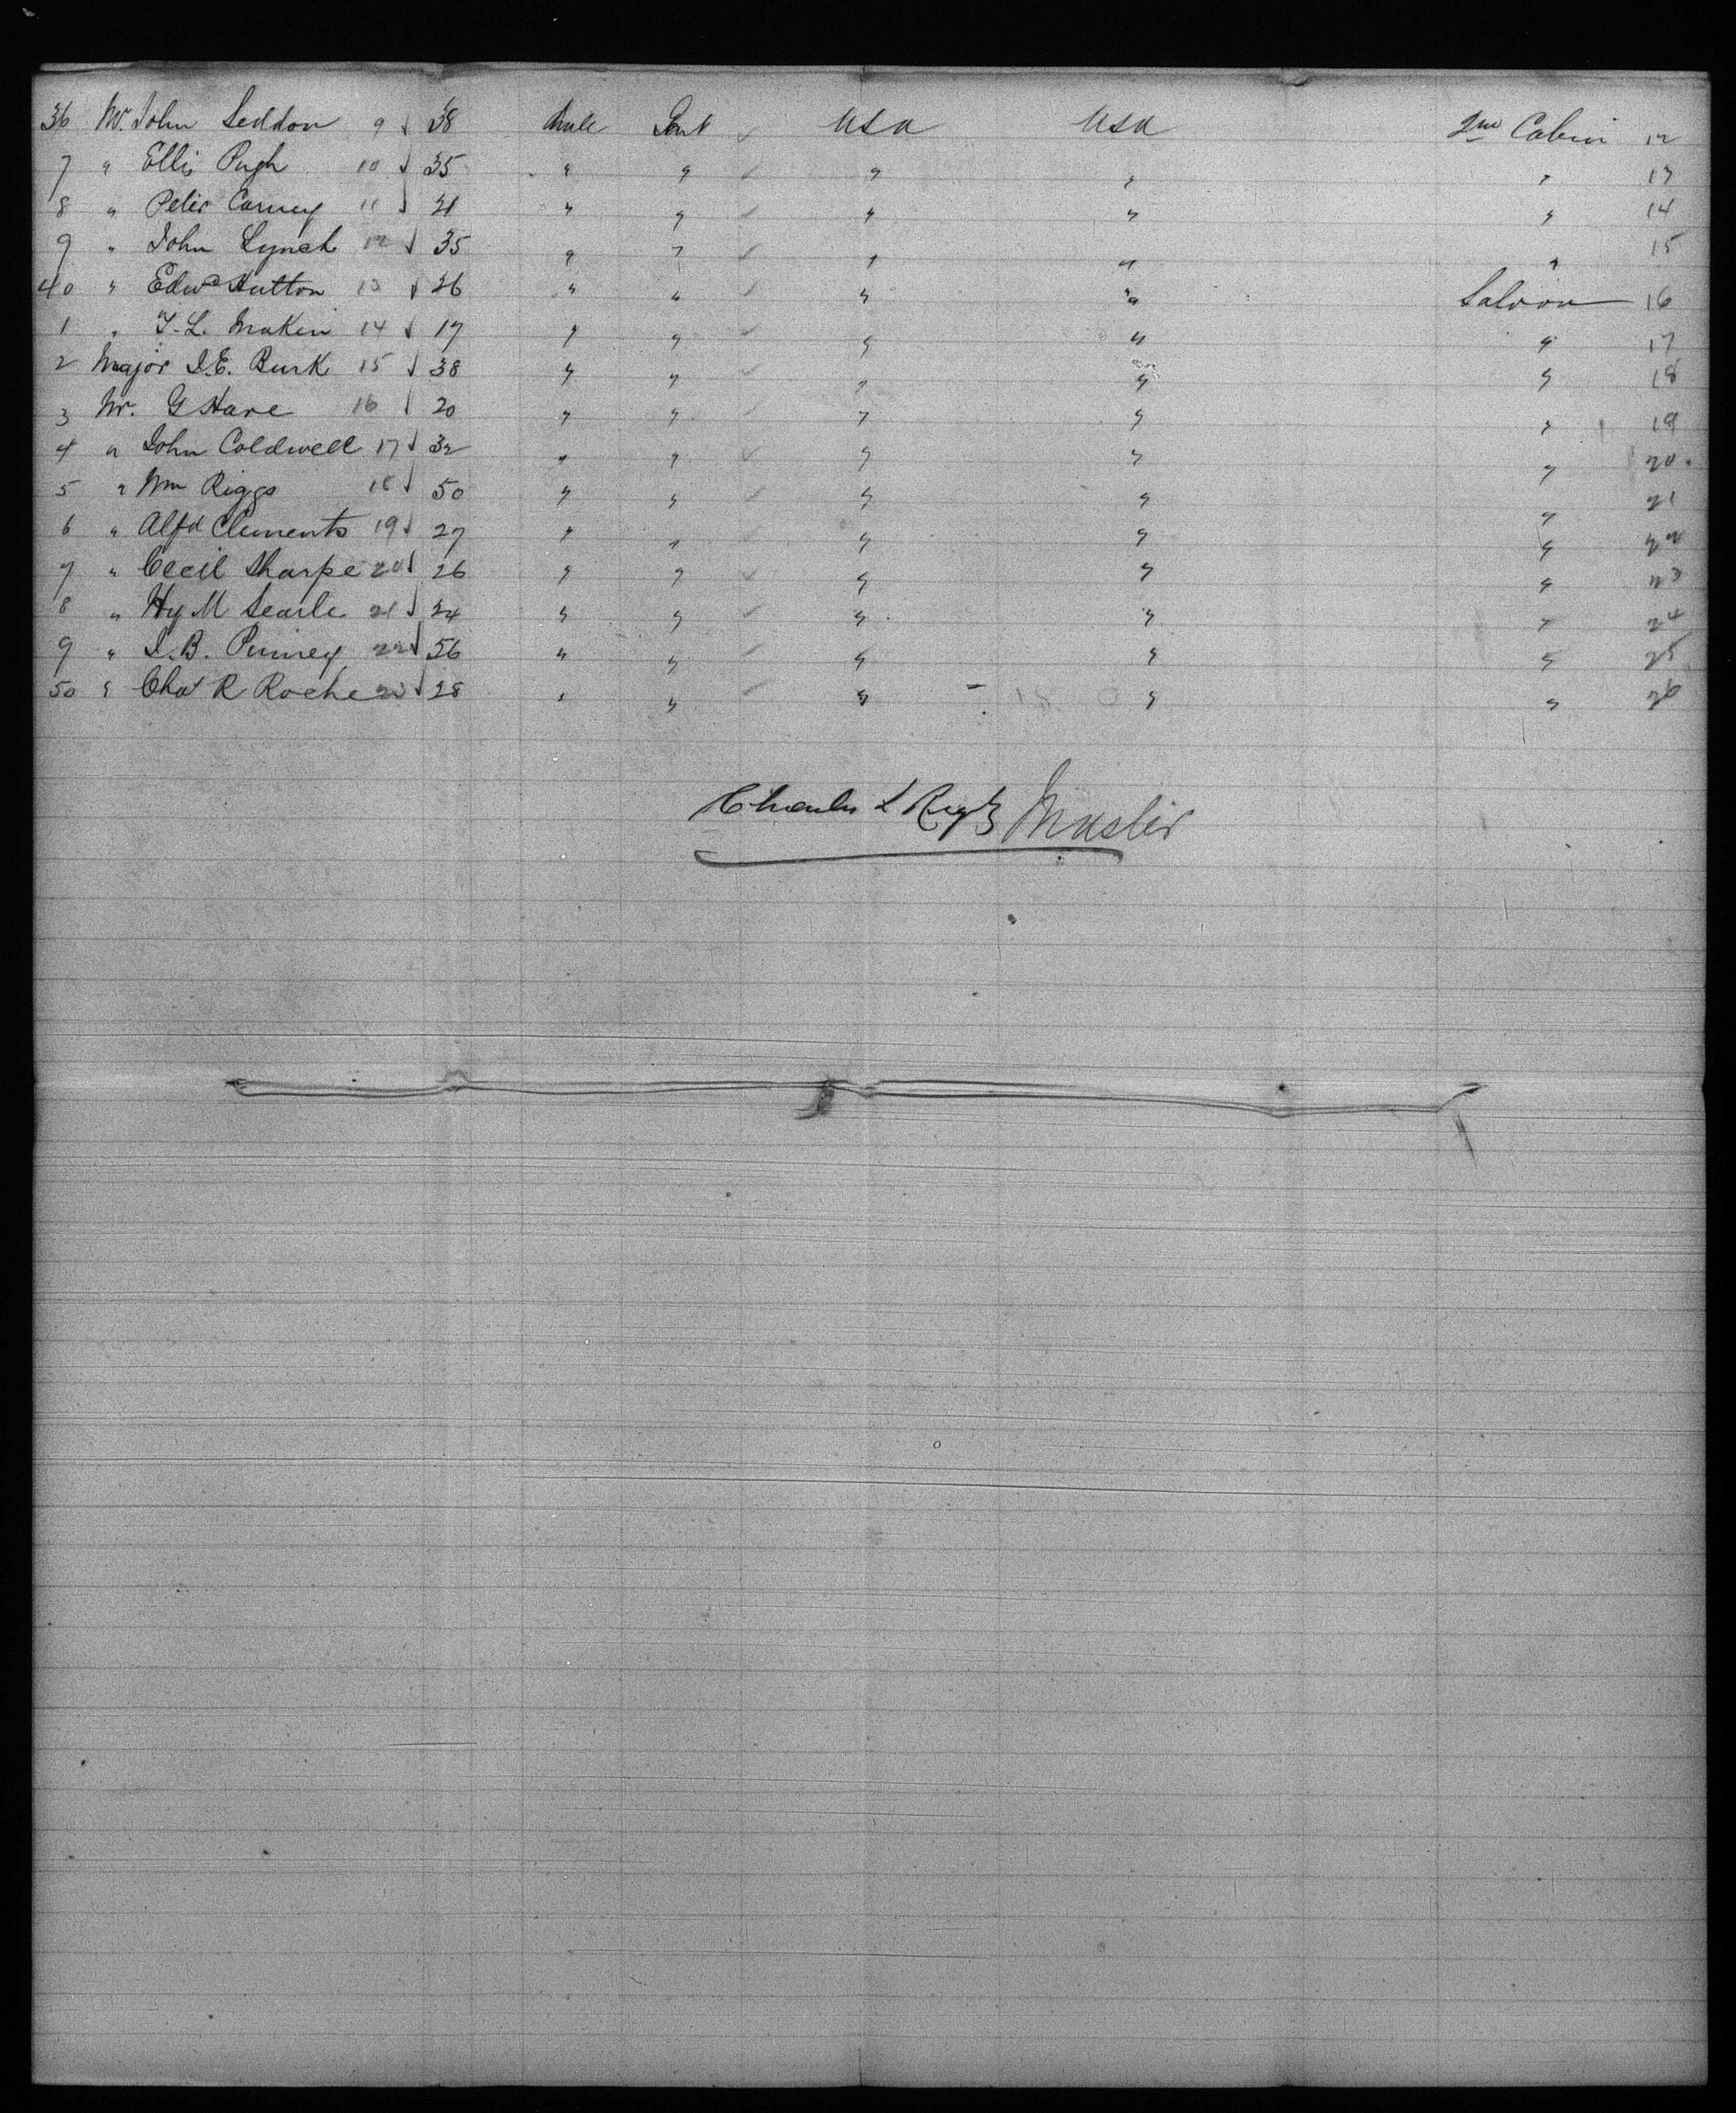 36 Mr. John Seddon 9 38 Male Gent USA USA 2nd Cabin 12
7 " Ellis Pugh 10 35 " " " " " 13
8 " Peter Carney 11 31 " " " " " 14
9 " John Lynch 12 35 " " " " " 15
40 " Edwd Hutton 13 26 " " " " Saloon 16
1 " T. L. Makin 14 19 " " " " " 17
2 Major I. E. Burk 15 38 " " " " " 18
3 Mr. G Hare 16 20 " " " " " 19
4 " John Coldwell 17 32 " " " " " 20
5 " Wm Riggs 18 50 " " " " " 21
6 " Alfd Clements 19 27 " " " " " 22
7 " Cecil Sharpe 20 26 " " " " " 23
8 " Hy M Searle 21 24 " " " " " 24
9 " I. B. 22 56 " " " " " 25
50 " Chas R Roche 23 28 " " " " " 26
Charles L Master